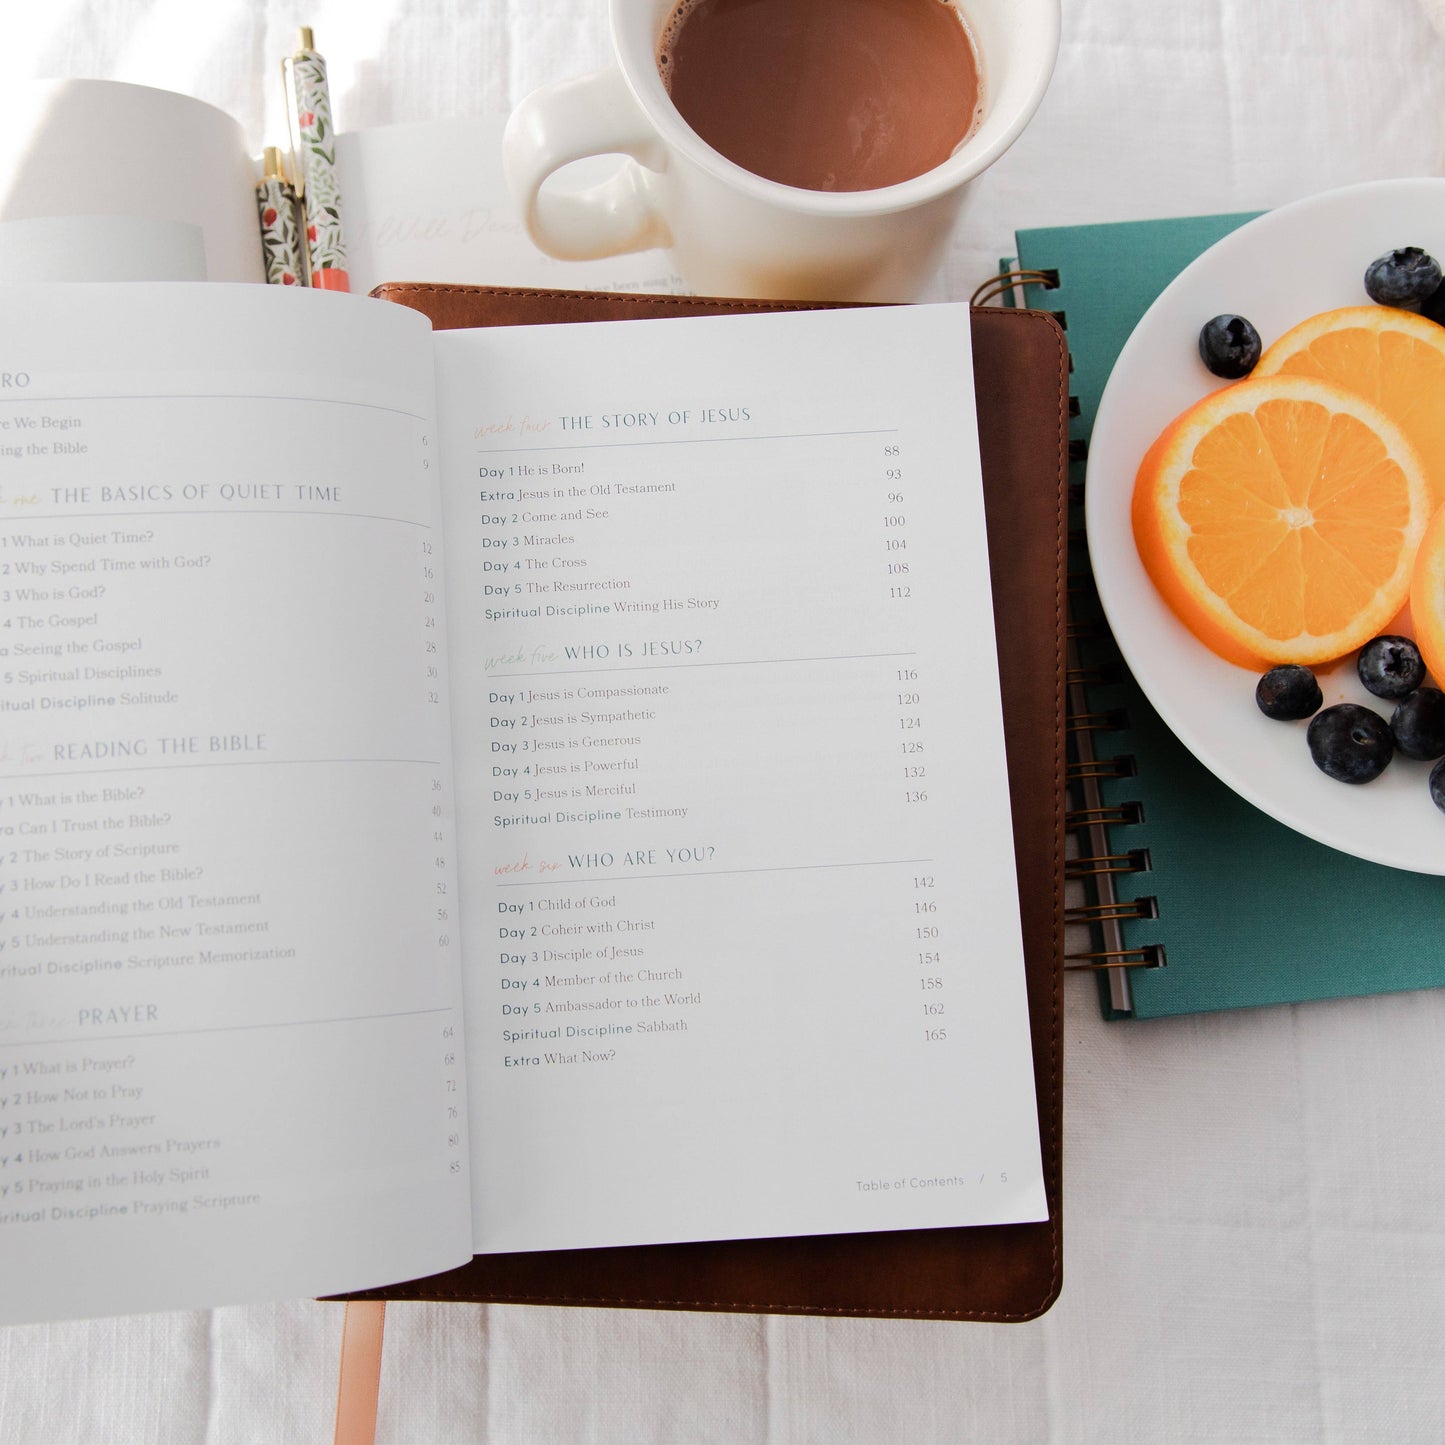 I Will
have been sung by
RO
re We Begin 6
ing the Bible 9
one THE BASICS OF QUIET TIME
1 What is Quiet Time? 12
2 Why Spend Time with God? 16
3 Who is God? 20
4 The Gospel 24
a Seeing the Gospel 28
5 Spiritual Disciplines 30
itual Discipline Solitude 32
two READING THE BIBLE
y 1 What is the Bible? 36
ra Can I Trust the Bible? 40
y 2 The Story of Scripture 44
y 3 How Do I Read the Bible? 48
y 4 Understanding the Old Testament 52
y 5 Understanding the New Testament 56
iritual Discipline Scripture Memorization 60
three PRAYER
y 1 What is Prayer? 64
y 2 How Not to Pray 68
y 3 The Lord's Prayer 72
y 4 How God Answers Prayers 76
y 5 Praying in the Holy Spirit 80
iritual Discipline Praying Scripture 85
week four THE STORY OF JESUS
Day 1 He is Born! 88
Extra Jesus in the Old Testament 93
Day 2 Come and See 96
Day 3 Miracles 100
Day 4 The Cross 104
Day 5 The Resurrection 108
Spiritual Discipline Writing His Story 112
week five WHO IS JESUS?
Day 1 Jesus is Compassionate 116
Day 2 Jesus is Sympathetic 120
Day 3 Jesus is Generous 124
Day 4 Jesus is Powerful 128
Day 5 Jesus is Merciful 132
Spiritual Discipline Testimony 136
week six WHO ARE YOU?
Day 1 Child of God 142
Day 2 Coheir with Christ 146
Day 3 Disciple of Jesus 150
Day 4 Member of the Church 154
Day 5 Ambassador to the World 158
Spiritual Discipline Sabbath 162
Extra What Now? 165
Table of Contents / 5